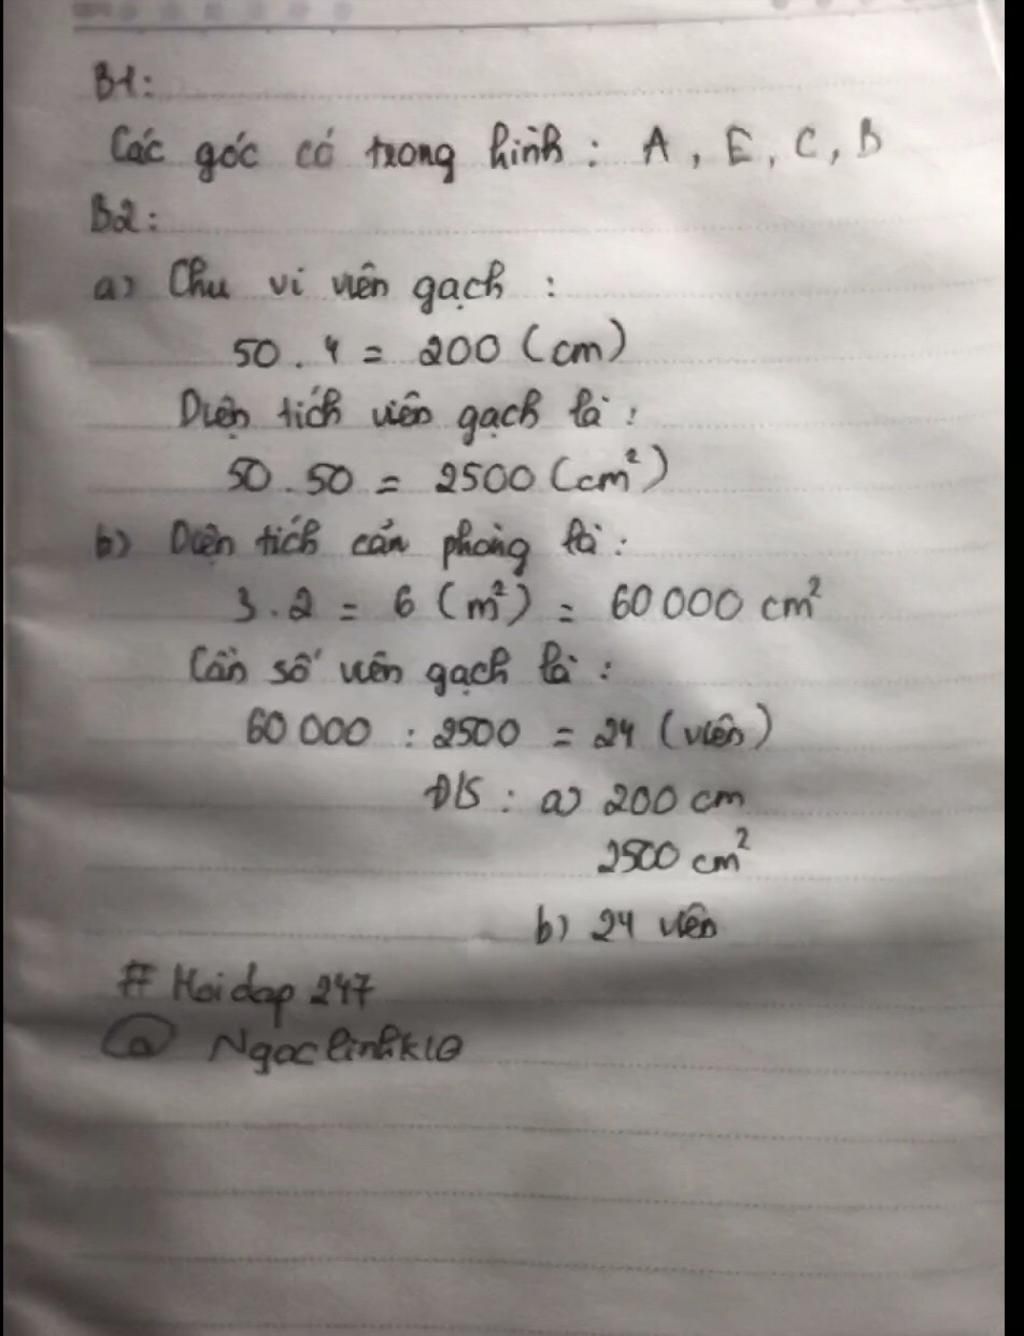 B1:
Các góc có trong hình : A, E, C, B
B2:
a) Chu vi viên gạch :
50 . 4 = 200 (cm)
Diện tích viên gạch là :
50 . 50 = 2500 (cm²)
b) Diện tích căn phòng là :
3 . 2 = 6 (m²) = 60 000 cm²
Cần số viên gạch là :
60 000 : 2500 = 24 (viên)
Đ/S : a) 200 cm
2500 cm²
b) 24 viên
# Hoidap 247
@ Ngoclinhk10